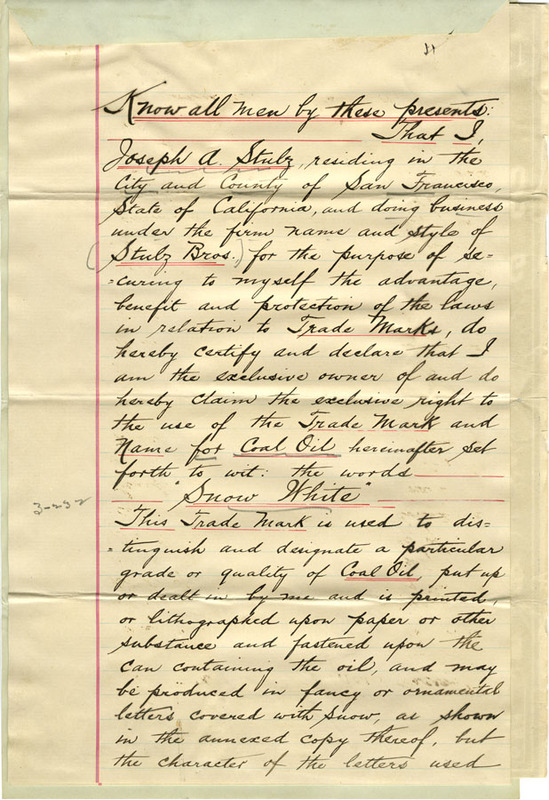 Know all men by these presents:
That I,
Joseph A. Stulz, residing in the
City and County of San Francisco,
State of California, and doing business
under the firm name and style of
(Stulz Bros.) for the purpose of se=
=curing to myself the advantage,
benefit and protection of the laws
in relation to Trade Marks, do
hereby certify and declare that I
am the exclusive owner of and do
hereby claim the exclusive right to
the use of the Trade Mark and
Name for Coal Oil hereinafter set
forth to wit: the words
"Snow White"
3-232
This Trade Mark is used to dis=
=tinguish and designate a particular
grade or quality of Coal Oil, put up
or dealt in by me and is printed,
or lithographed upon paper or other
substance and fastened upon the
can containing the oil, and may
be produced in fancy or ornamental
letters covered with snow, as shown
in the annexed copy thereof, but
the character of the letters used